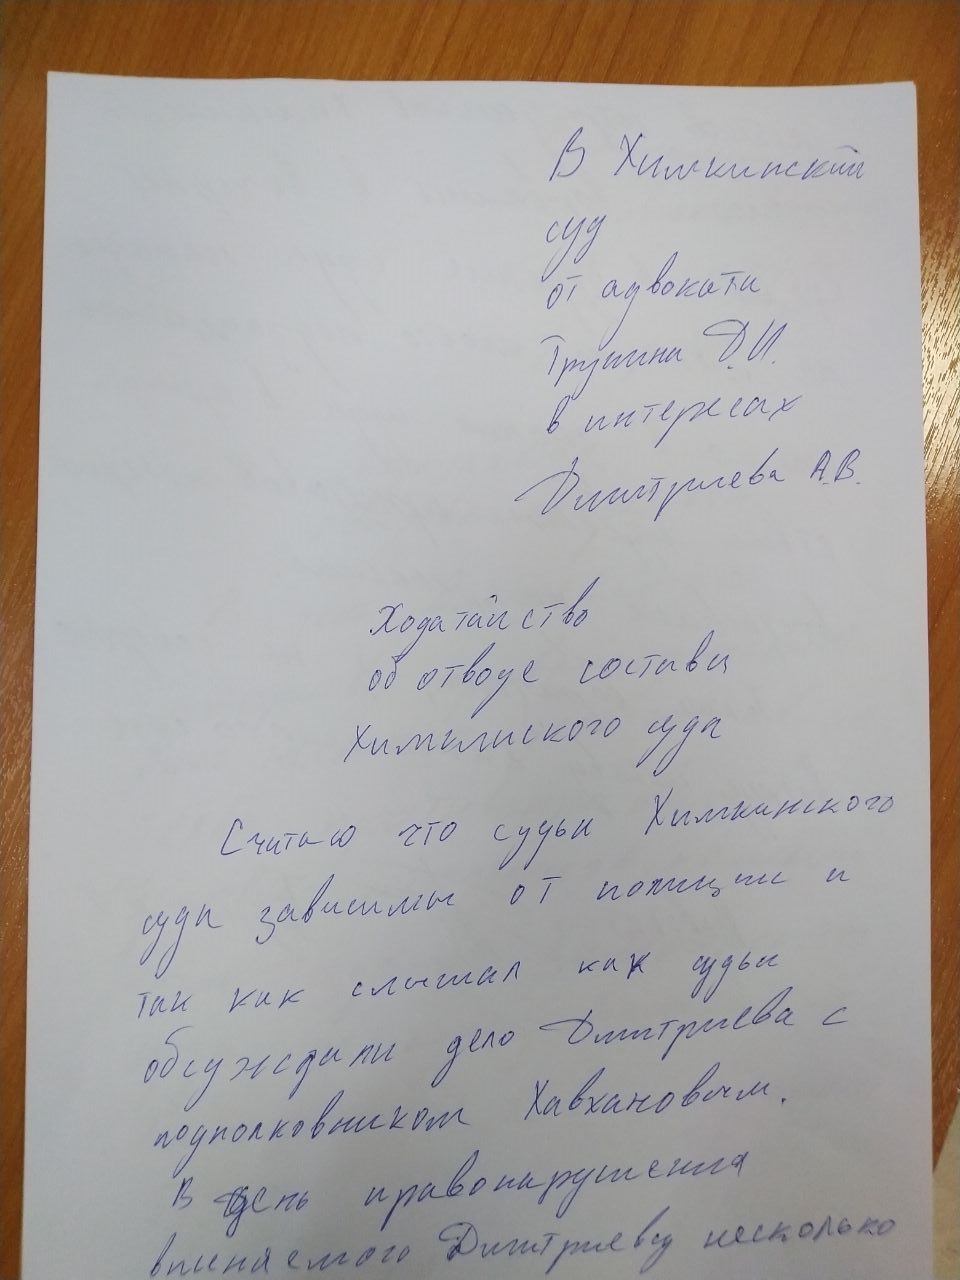 В Химкинский
суд
от адвоката
Трунина Д.И.
в интересах
Дмитриева А.В.
Ходатайство
об отводе состава
Химкинского суда
Считаю что судьи Химкинского
суда зависимы от полиции и
так как слышал как судьи
обсуждали дело Дмитриева с
подполковником Хавхановым.
В день правонарушения
вменяемого Дмитриеву несколько